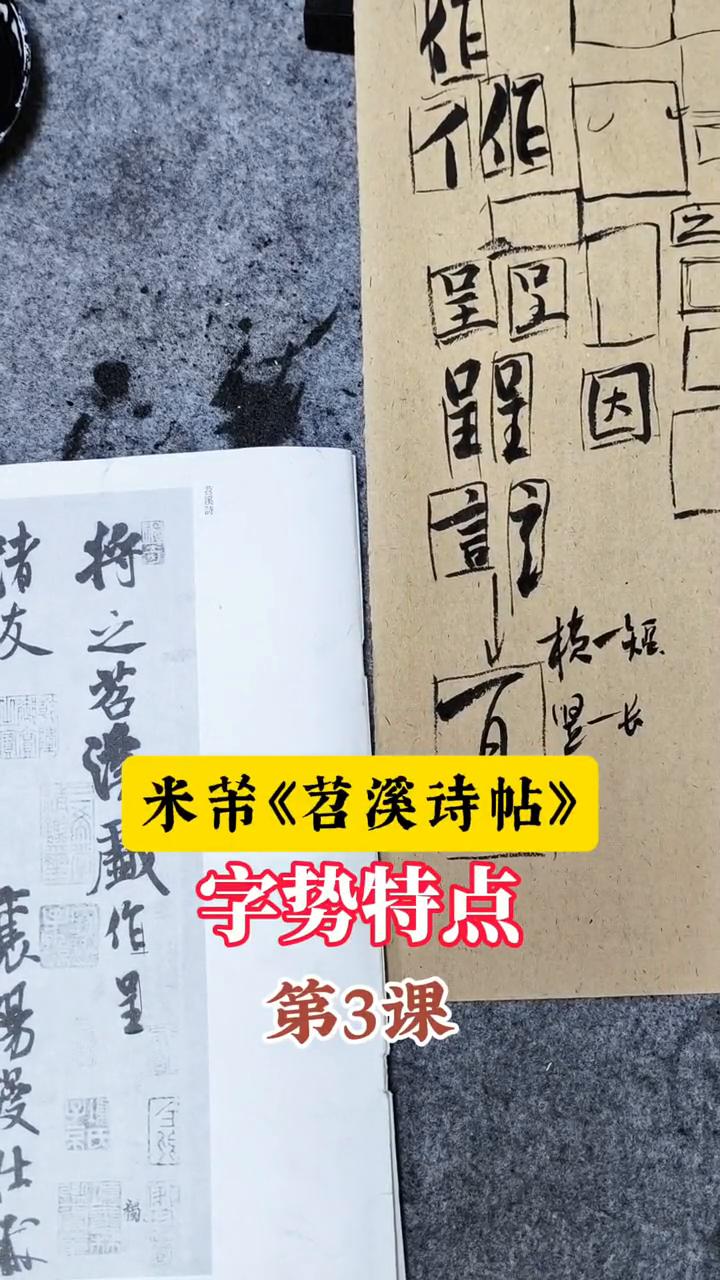 作
亻 作
之
呈 呈
呈 呈
因
言 言
横一短
竖一长
百
苕溪詩
将之苕溪戯作呈
诸友
襄陽漫仕黻
米芾《苕溪诗帖》
字势特点
第3课